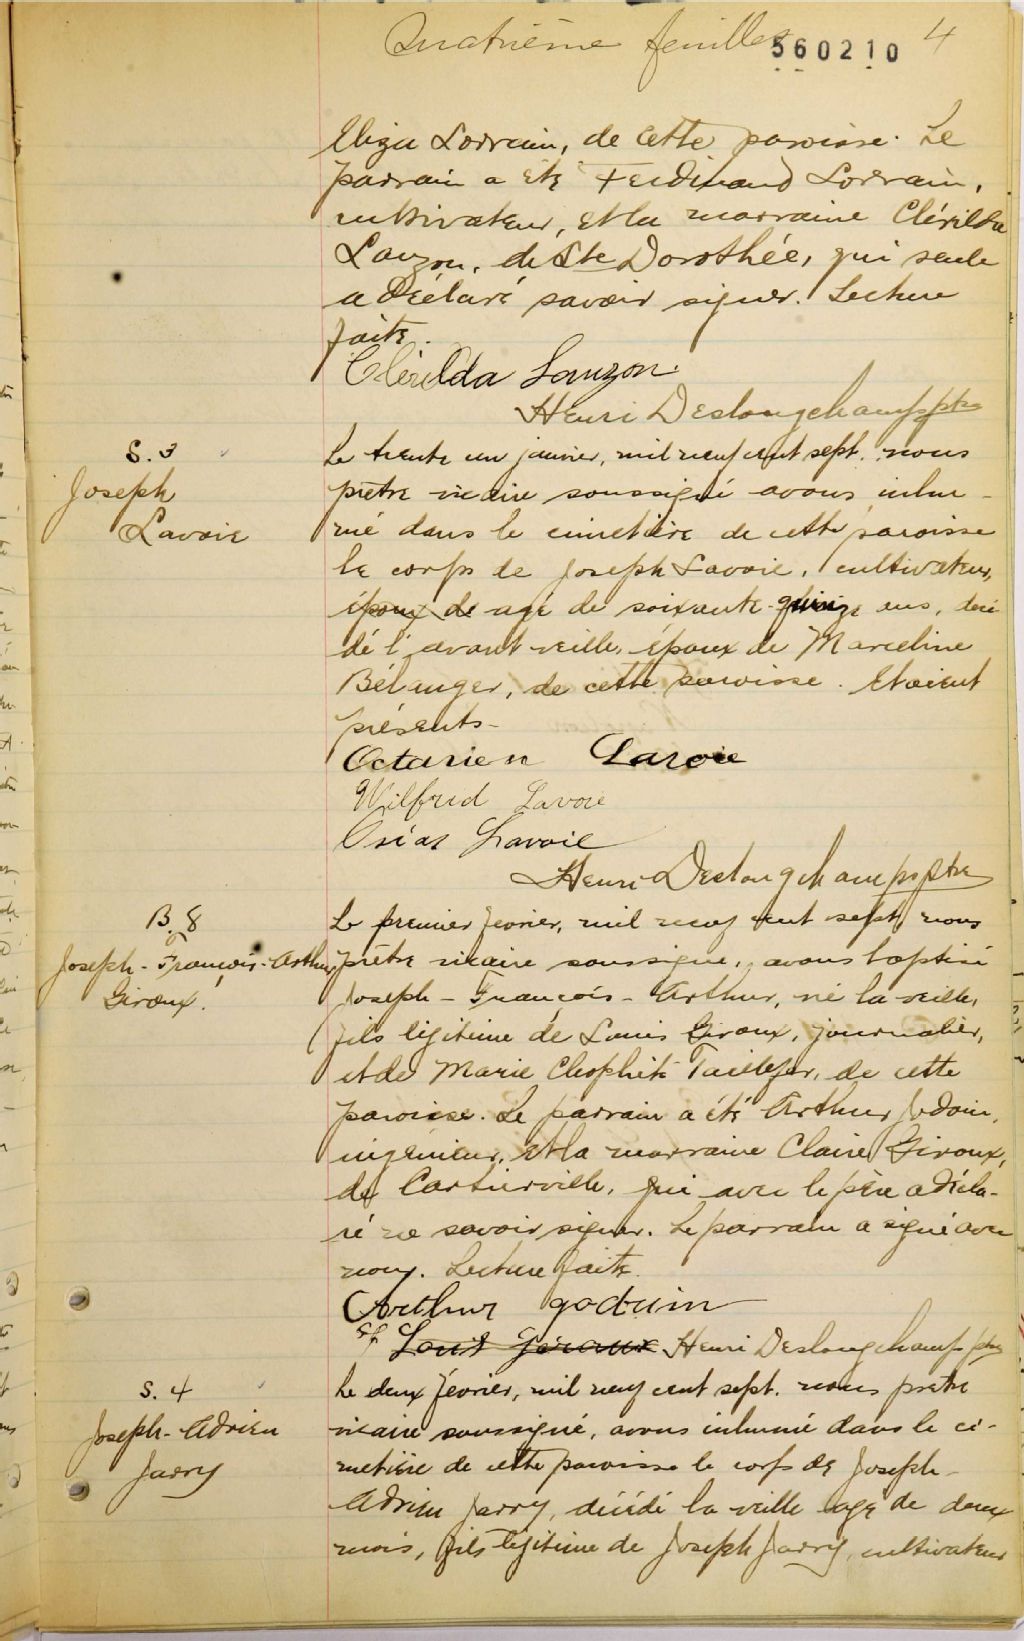 Quatrième feuillet 560210 4
Eliza Lorrain, de cette paroisse. Le
parrain a été Ferdinand Lorrain,
cultivateur, et la marraine Clérilda
Lauzon, de Ste Dorothée, qui seule
a déclaré savoir signer. Lecture
faite.
Clérilda Lauzon
Henri Deslongchamps ptre
S. 3
Joseph
Lavoie
Le trente un janvier, mil neuf cent sept, nous
prêtre vicaire soussigné avons inhu-
mé dans le cimetière de cette paroisse
le corps de Joseph Lavoie, cultivateur,
époux de agé de soixante-quinze ans, décé
dé l'avant veille, époux de Marceline
Bélanger, de cette paroisse. Etaient
présents-
Octavien Lavoie
Wilfrid Lavoie
Osias Lavoie
Henri Deslongchamps ptre
B. 8
Joseph-François-Arthur
Giroux.
Le premier février, mil neuf cent sept, nous
prêtre vicaire soussigné, avons baptisé
Joseph-François-Arthur, né la veille,
fils légitime de Louis Giroux, journalier,
et de Marie Cléophée Taillefer, de cette
paroisse. Le parrain a été Arthur Jodoin,
ingénieur, et la marraine Claire Giroux,
de Cartierville, qui avec le père a décla-
ré ne savoir signer. Le parrain a signé avec
nous. Lecture faite.
Arthur goduin
Louis Giroux Henri Deslongchamps ptre
S. 4
Joseph-Adrien
Jarry
Le deux février, mil neuf cent sept, nous prêtre
vicaire soussigné, avons inhumé dans le ci-
metière de cette paroisse le corps de Joseph-
Adrien Jarry, décédé la veille agé de deux
mois, fils légitime de Joseph Jarry, cultivateur